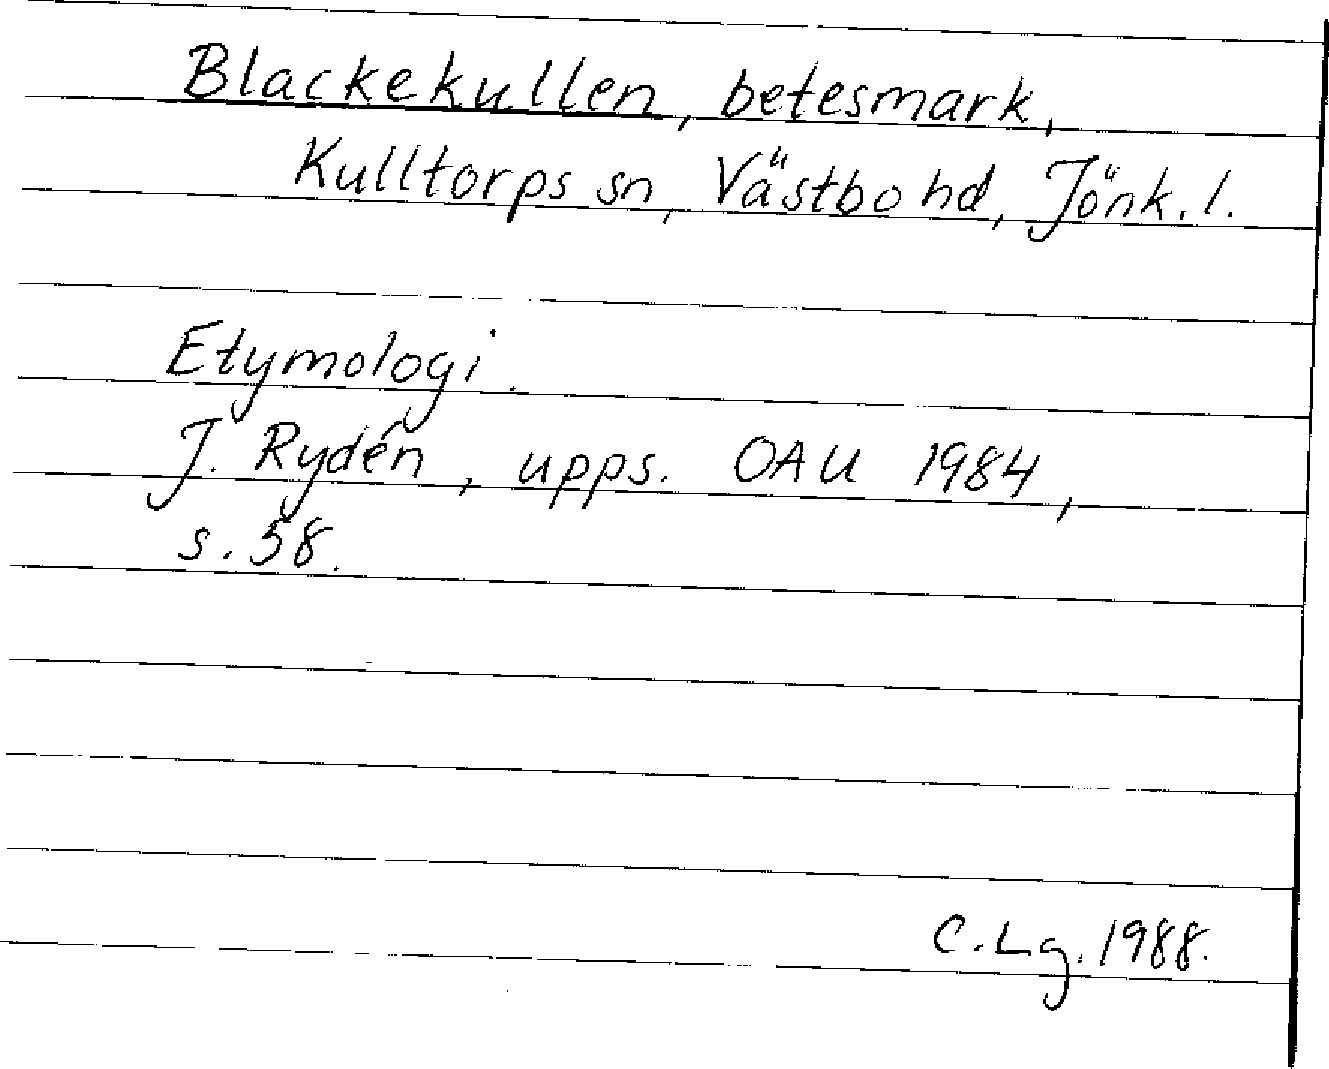 Blackekullen, betesmark,
Kulltorps sn, Västbo hd, Jönk. l.
Etymologi.
J. Rydén, upps. OAU 1984,
s. 58.
C. Lg. 1988.